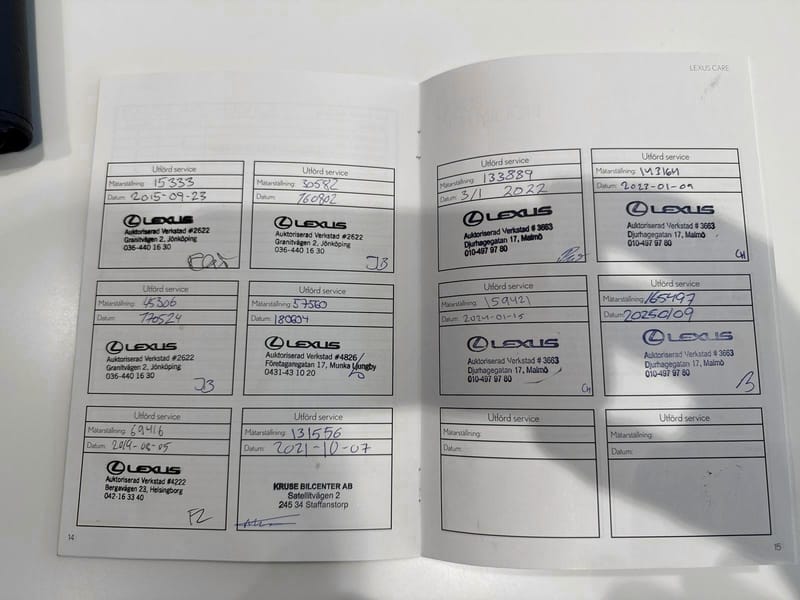 LEXUS CARE
Utförd service
Mätarställning: 15333
Datum: 2015-09-23
LEXUS
Auktoriserad Verkstad #2622
Granitvägen 2, Jönköping
036-440 16 30
Utförd service
Mätarställning: 30582
Datum: 160802
LEXUS
Auktoriserad Verkstad #2622
Granitvägen 2, Jönköping
036-440 16 30
JB
Utförd service
Mätarställning: 45306
Datum: 170524
LEXUS
Auktoriserad Verkstad #2622
Granitvägen 2, Jönköping
036-440 16 30
JB
Utförd service
Mätarställning: 57560
Datum: 180604
LEXUS
Auktoriserad Verkstad #4826
Företagaregatan 17, Munka Ljungby
0431-43 10 20
Utförd service
Mätarställning: 69416
Datum: 2019-08-05
LEXUS
Auktoriserad Verkstad #4222
Bergavägen 23, Helsingborg
042-16 33 40
FZ
Utförd service
Mätarställning: 131556
Datum: 2021-10-07
KRUSE BILCENTER AB
Satellitvägen 2
245 34 Staffanstorp
14
Utförd service
Mätarställning: 133889
Datum: 3/1 2022
LEXUS
Auktoriserad Verkstad # 3663
Djurhagegatan 17, Malmö
010-497 97 80
Utförd service
Mätarställning: 143164
Datum: 2023-01-09
LEXUS
Auktoriserad Verkstad # 3663
Djurhagegatan 17, Malmö
010-497 97 80
CH
Utförd service
Mätarställning: 159421
Datum: 2024-01-15
LEXUS
Auktoriserad Verkstad # 3663
Djurhagegatan 17, Malmö
010-497 97 80
CH
Utförd service
Mätarställning: 165497
Datum: 20250109
LEXUS
Auktoriserad Verkstad # 3663
Djurhagegatan 17, Malmö
010-497 97 80
Utförd service
Mätarställning:
Datum:
Utförd service
Mätarställning:
Datum:
15